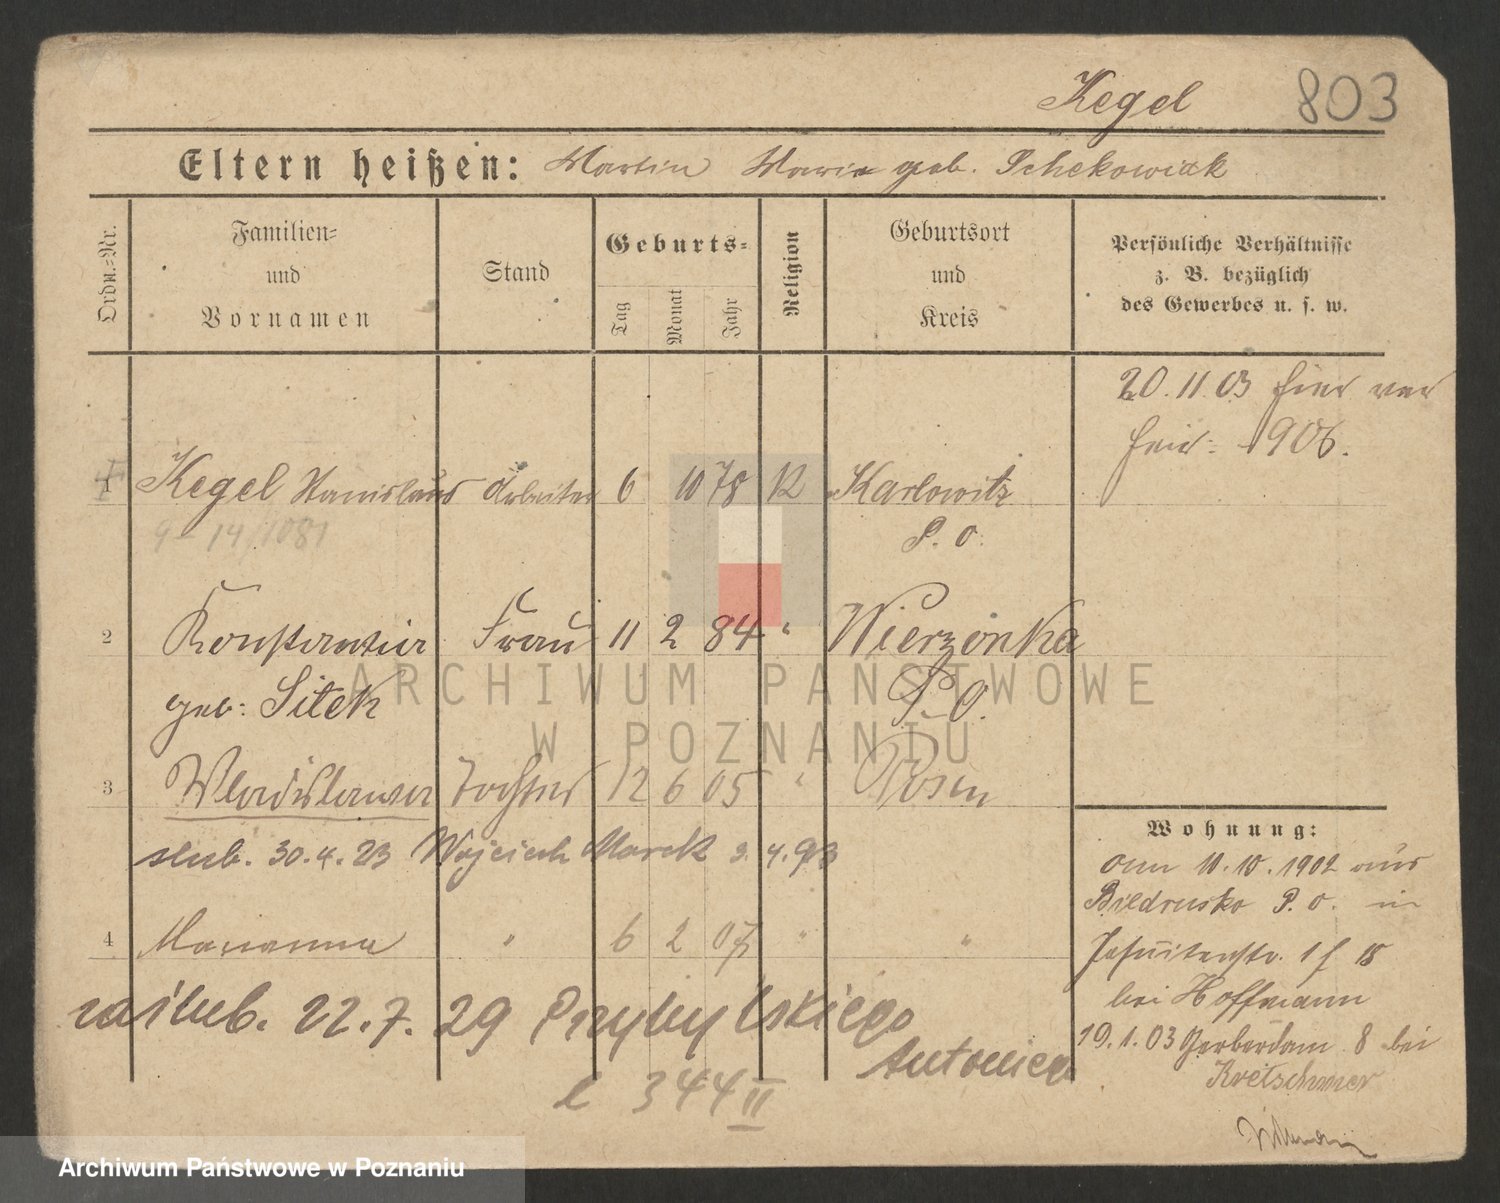 Kegel 803
Eltern heißen: Martin Marie geb. Schekowiak
Ordn.-Nr.
Familien-
und
Vornamen
Stand
Geburts-
Tag
Monat
Jahr
Religion
Geburtsort
und
Kreis
Persönliche Verhältnisse
z. B. bezüglich
des Gewerbes u. s. w.
20. 11. 03 hier ver
heir: 1906.
1 Kegel Stanislaus Arbeiter 6 10 78 K Karlowitz
9 - 14/1081 P. O.
2 Konstantia Frau 11 2 84 " Wierzonka
geb: Sitek P. O.
3 Wladislawa Tochter 12 6 05 " Posen
slub. 30. 4. 23 Wojciech Marek 3. 4. 93
4 Marianna " 6 2 07 " "
zaślub. 22. 7. 29 Przybylskiego
Antoniego
l 344 II
Wohnung:
am 10. 10. 1902 aus
Biedrusko P. O. in
Jesuitenstr. 1 f 18
bei Hoffmann
19. 1. 03 Gerberdamm 8 bei
Kretschmer
ARCHIWUM PAŃSTWOWE
W POZNANIU
Archiwum Państwowe w Poznaniu